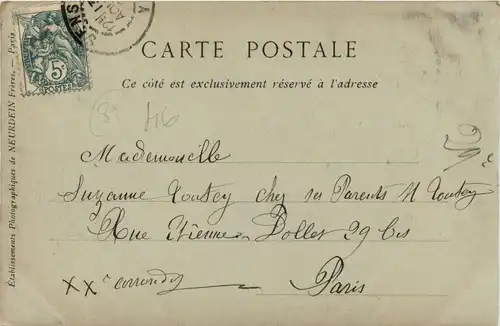 CARTE POSTALE
Ce côté est exclusivement réservé à l'adresse
Établissements Photographiques de NEURDEIN Frères. — Paris
5c
POSTES
Mademoiselle
Suzanne Toutey chez ses Parents M Toutey
Rue Etienne-Dollet 29 bis
Paris
XXe